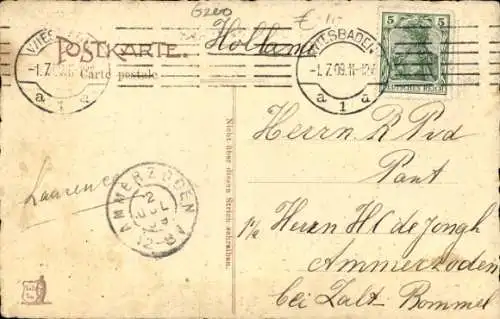 G200
Holland
POSTKARTE.
Carte postale
WIESBADEN
-1.7.09.11-12
a 1 a
WIESBADEN
-1.7.09.11-12V
a 1 a
5 5
DEUTSCHES REICH
Herrn R Pvd
Pant
p/a Herrn H C de Jongh
Ammerzoden
bei Zalt-Bommel
Laurence
AMMERZODEN
2
JUL
Nicht über diesen Strich schreiben.